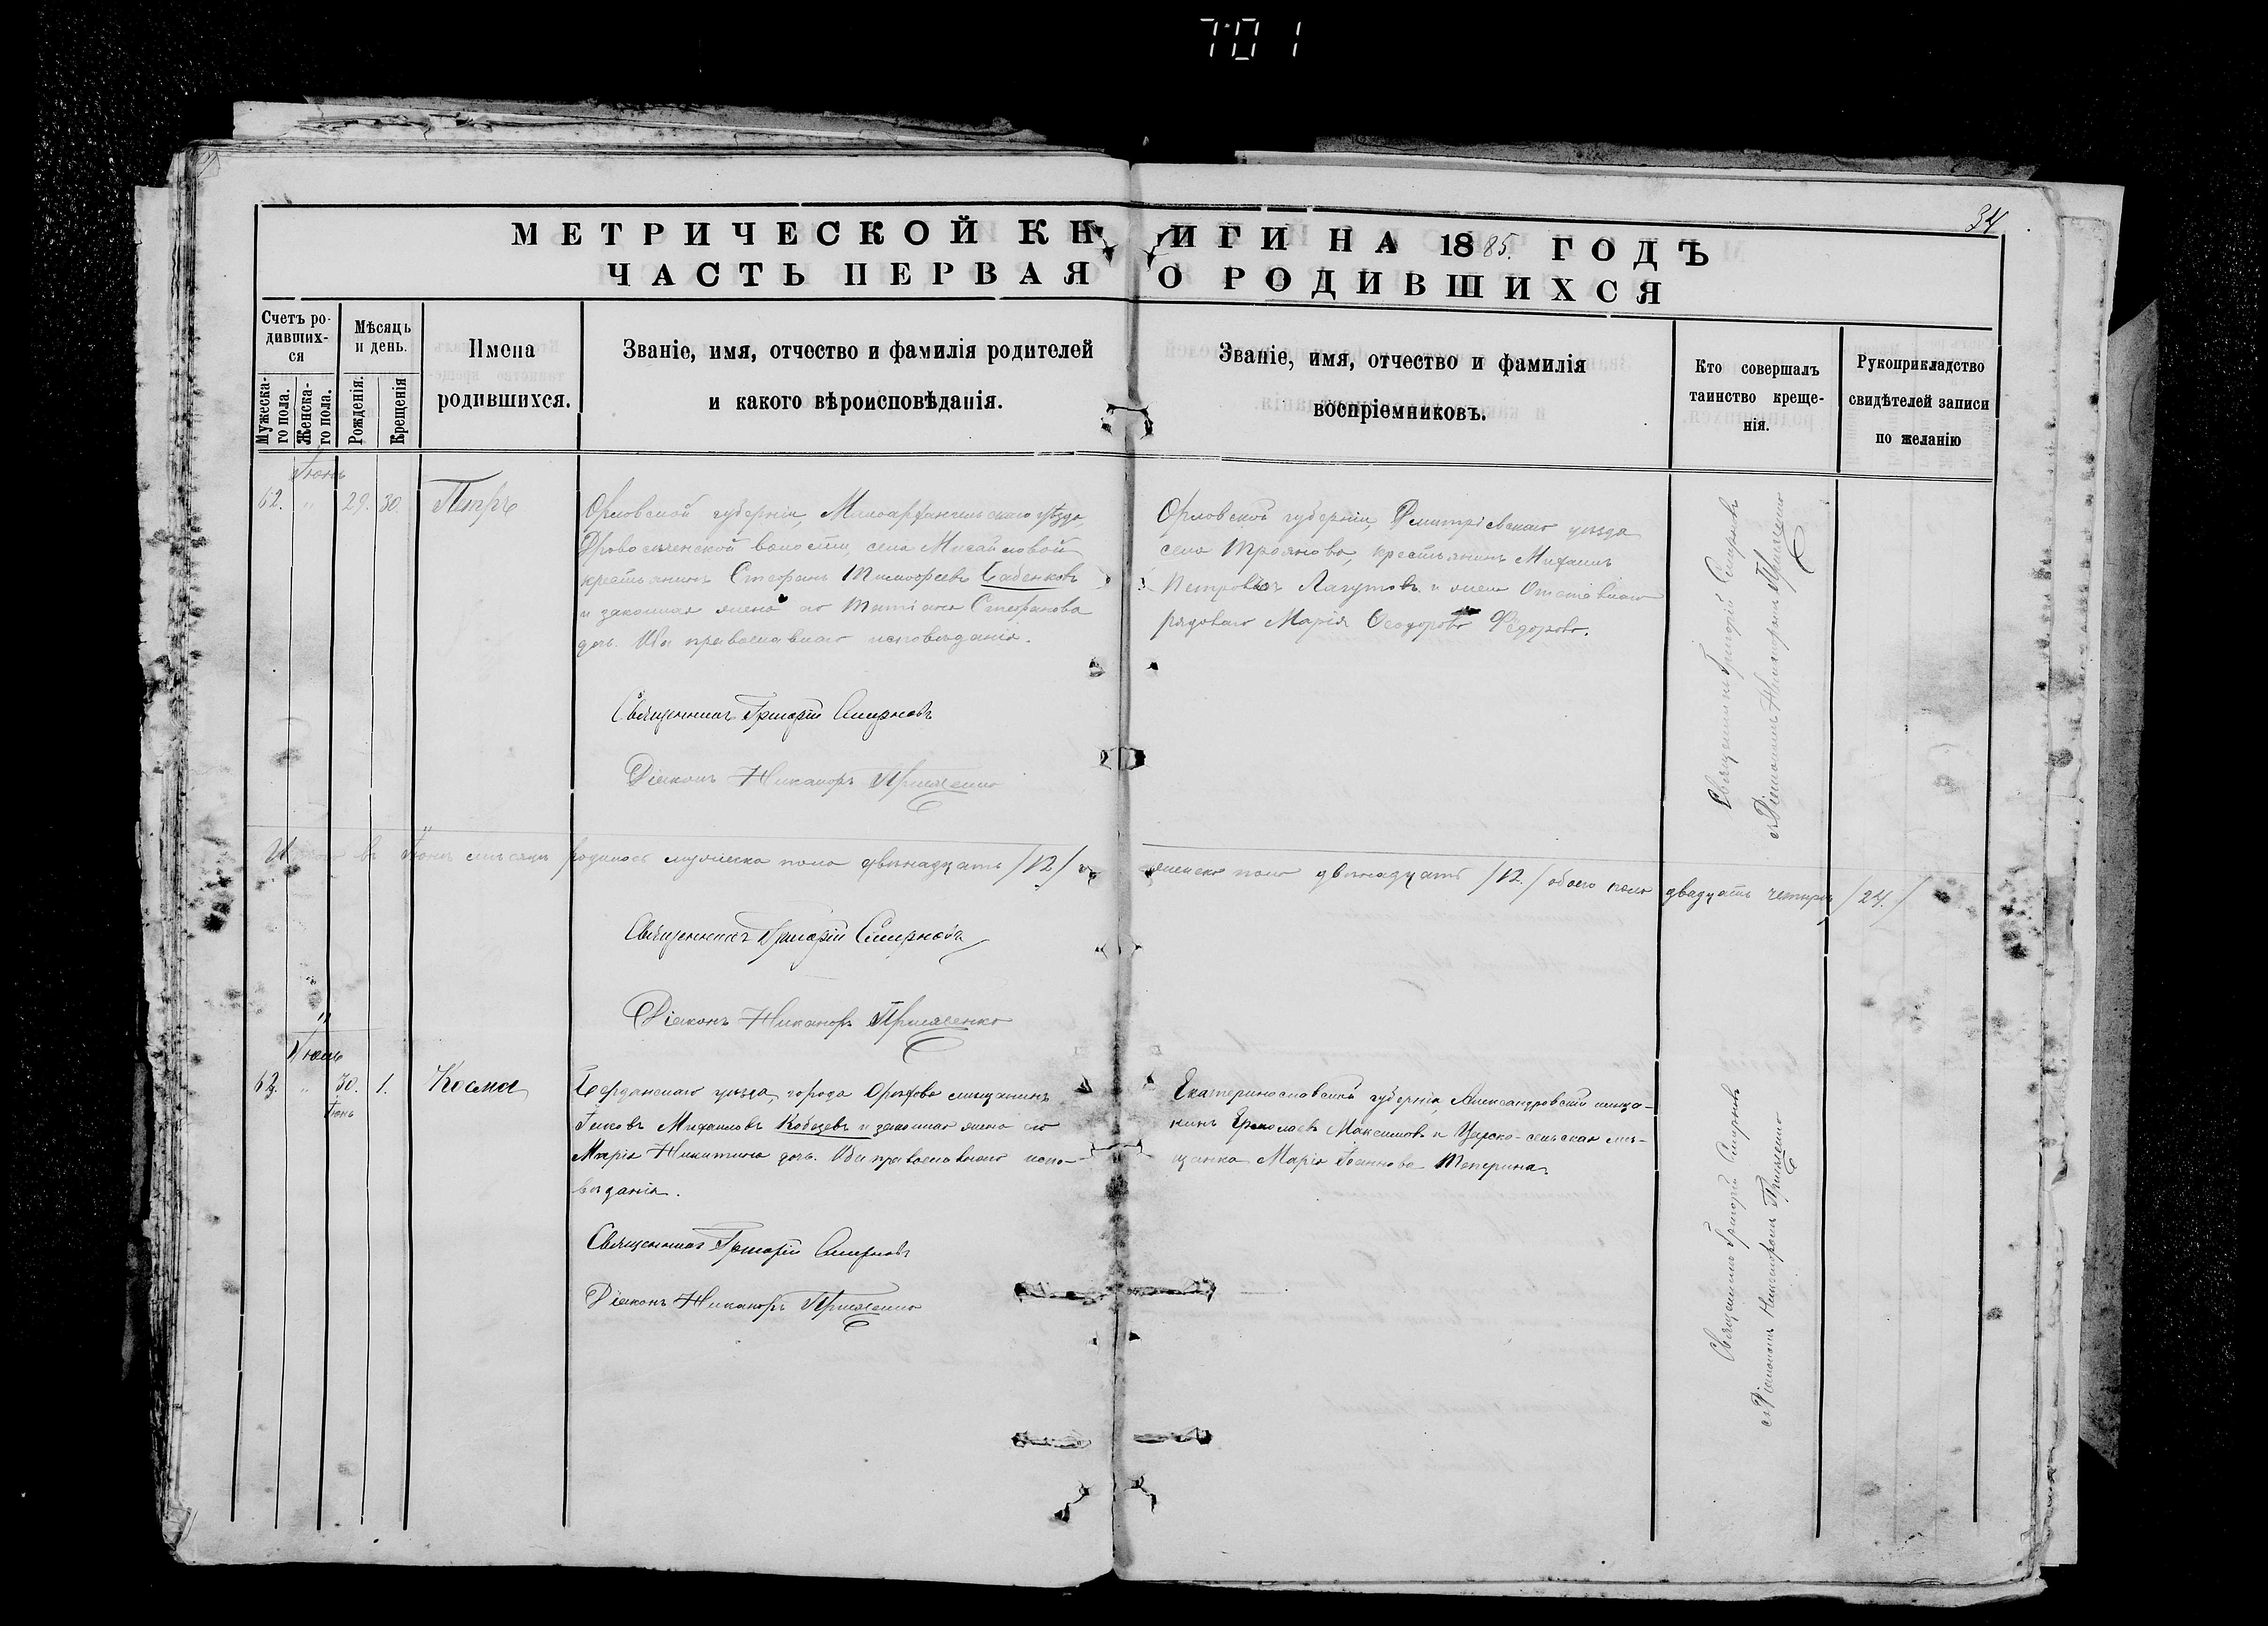 701
34
МЕТРИЧЕСКОЙ КНИГИ НА 1885. ГОДЪ
ЧАСТЬ ПЕРВАЯ О РОДИВШИХСЯ
Счетъ родившихся
Мужеска-го пола.
Женска-го пола.
Мѣсяць и день.
Рожденія.
Крещенія
Имена родившихся.
Званіе, имя, отчество и фамилія родителей
и какого вѣроисповѣданія.
Званіе, имя, отчество и фамилія
воспріемниковъ.
Кто совершалъ
таинство креще-
нія.
Рукоприкладство
свидѣтелей записи
по желанію
Іюнь
62. " 29. 30. Петръ
Орловской губерніи, Малоархангельскаго уѣзда,
волости, села
крестьянинъ Стефанъ Тимофеевъ Бабенковъ
и законная жена его Татіана Стефанова
дочь. Оба православнаго исповѣданія.
Священникъ Григорій Смирновъ
Діаконъ Никаноръ
Орловской губерніи, Дмитріевскаго уѣзда
села Трояново, крестьянинъ Михаилъ
Петровъ Лагутовъ и жена Отставнаго
рядоваго Марія Ѳеодорова Фёдорова.
Священникъ Григорій Смирновъ
съ Діакономъ
Итого въ Іюнѣ мѣсяцѣ родилось мужеска пола двѣнадцать /12/ и женска пола двѣнадцать /12./ обоего пола двадцать четыре /24./
Священникъ Григорій Смирновъ
Діаконъ Никаноръ
Іюль
" 30. 1. Косма
Іюнь
Бердянскаго уѣзда, города Орѣхова мѣщанинъ
Іаковъ Михаиловъ Кобозевъ и законная жена его
Марія Никитина дочь. Оба православнаго испо-
вѣданія.
Священникъ Григорій Смирновъ
Діаконъ Никаноръ
Екатеринославской губерніи, Александровскій мѣща-
нинъ Максимовъ и Царско-сельская мѣ-
щанка Марія Іоаннова Тетерина
Священникъ Григорій Смирновъ
съ Діакономъ